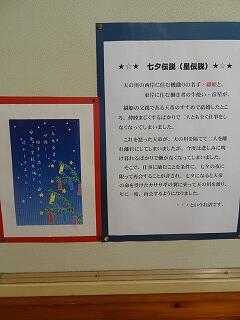 ★☆★ 七夕伝説(星伝説) ★☆★
天の川の西岸に住む機織りの名手・織姫と、
東岸に住む働き者の牛使い・彦星が、
織姫の父親である天帝のすすめで結婚したとこ
ろ、仲睦まじくするばかりで二人とも全く仕事をし
なくなってしまいました。
これを怒った天帝が、天の川を隔てて二人を
離れ離れにしてしまいましたが、今度は悲しみに明
け暮れるばかりで働かなくなってしまいました。
そこで、仕事に励むことを条件に、七夕の夜に
限って再会することが許され、七夕になると天帝
の命を受けたカササギの翼に乗って天の川を渡り、
年に一度、再会するようになりました。
・・・というお話です。